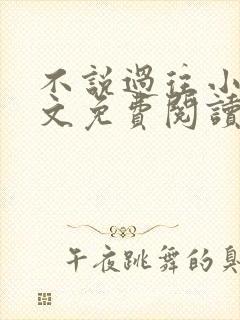 不說過往小
文免費閱讀
午夜跳舞的臭